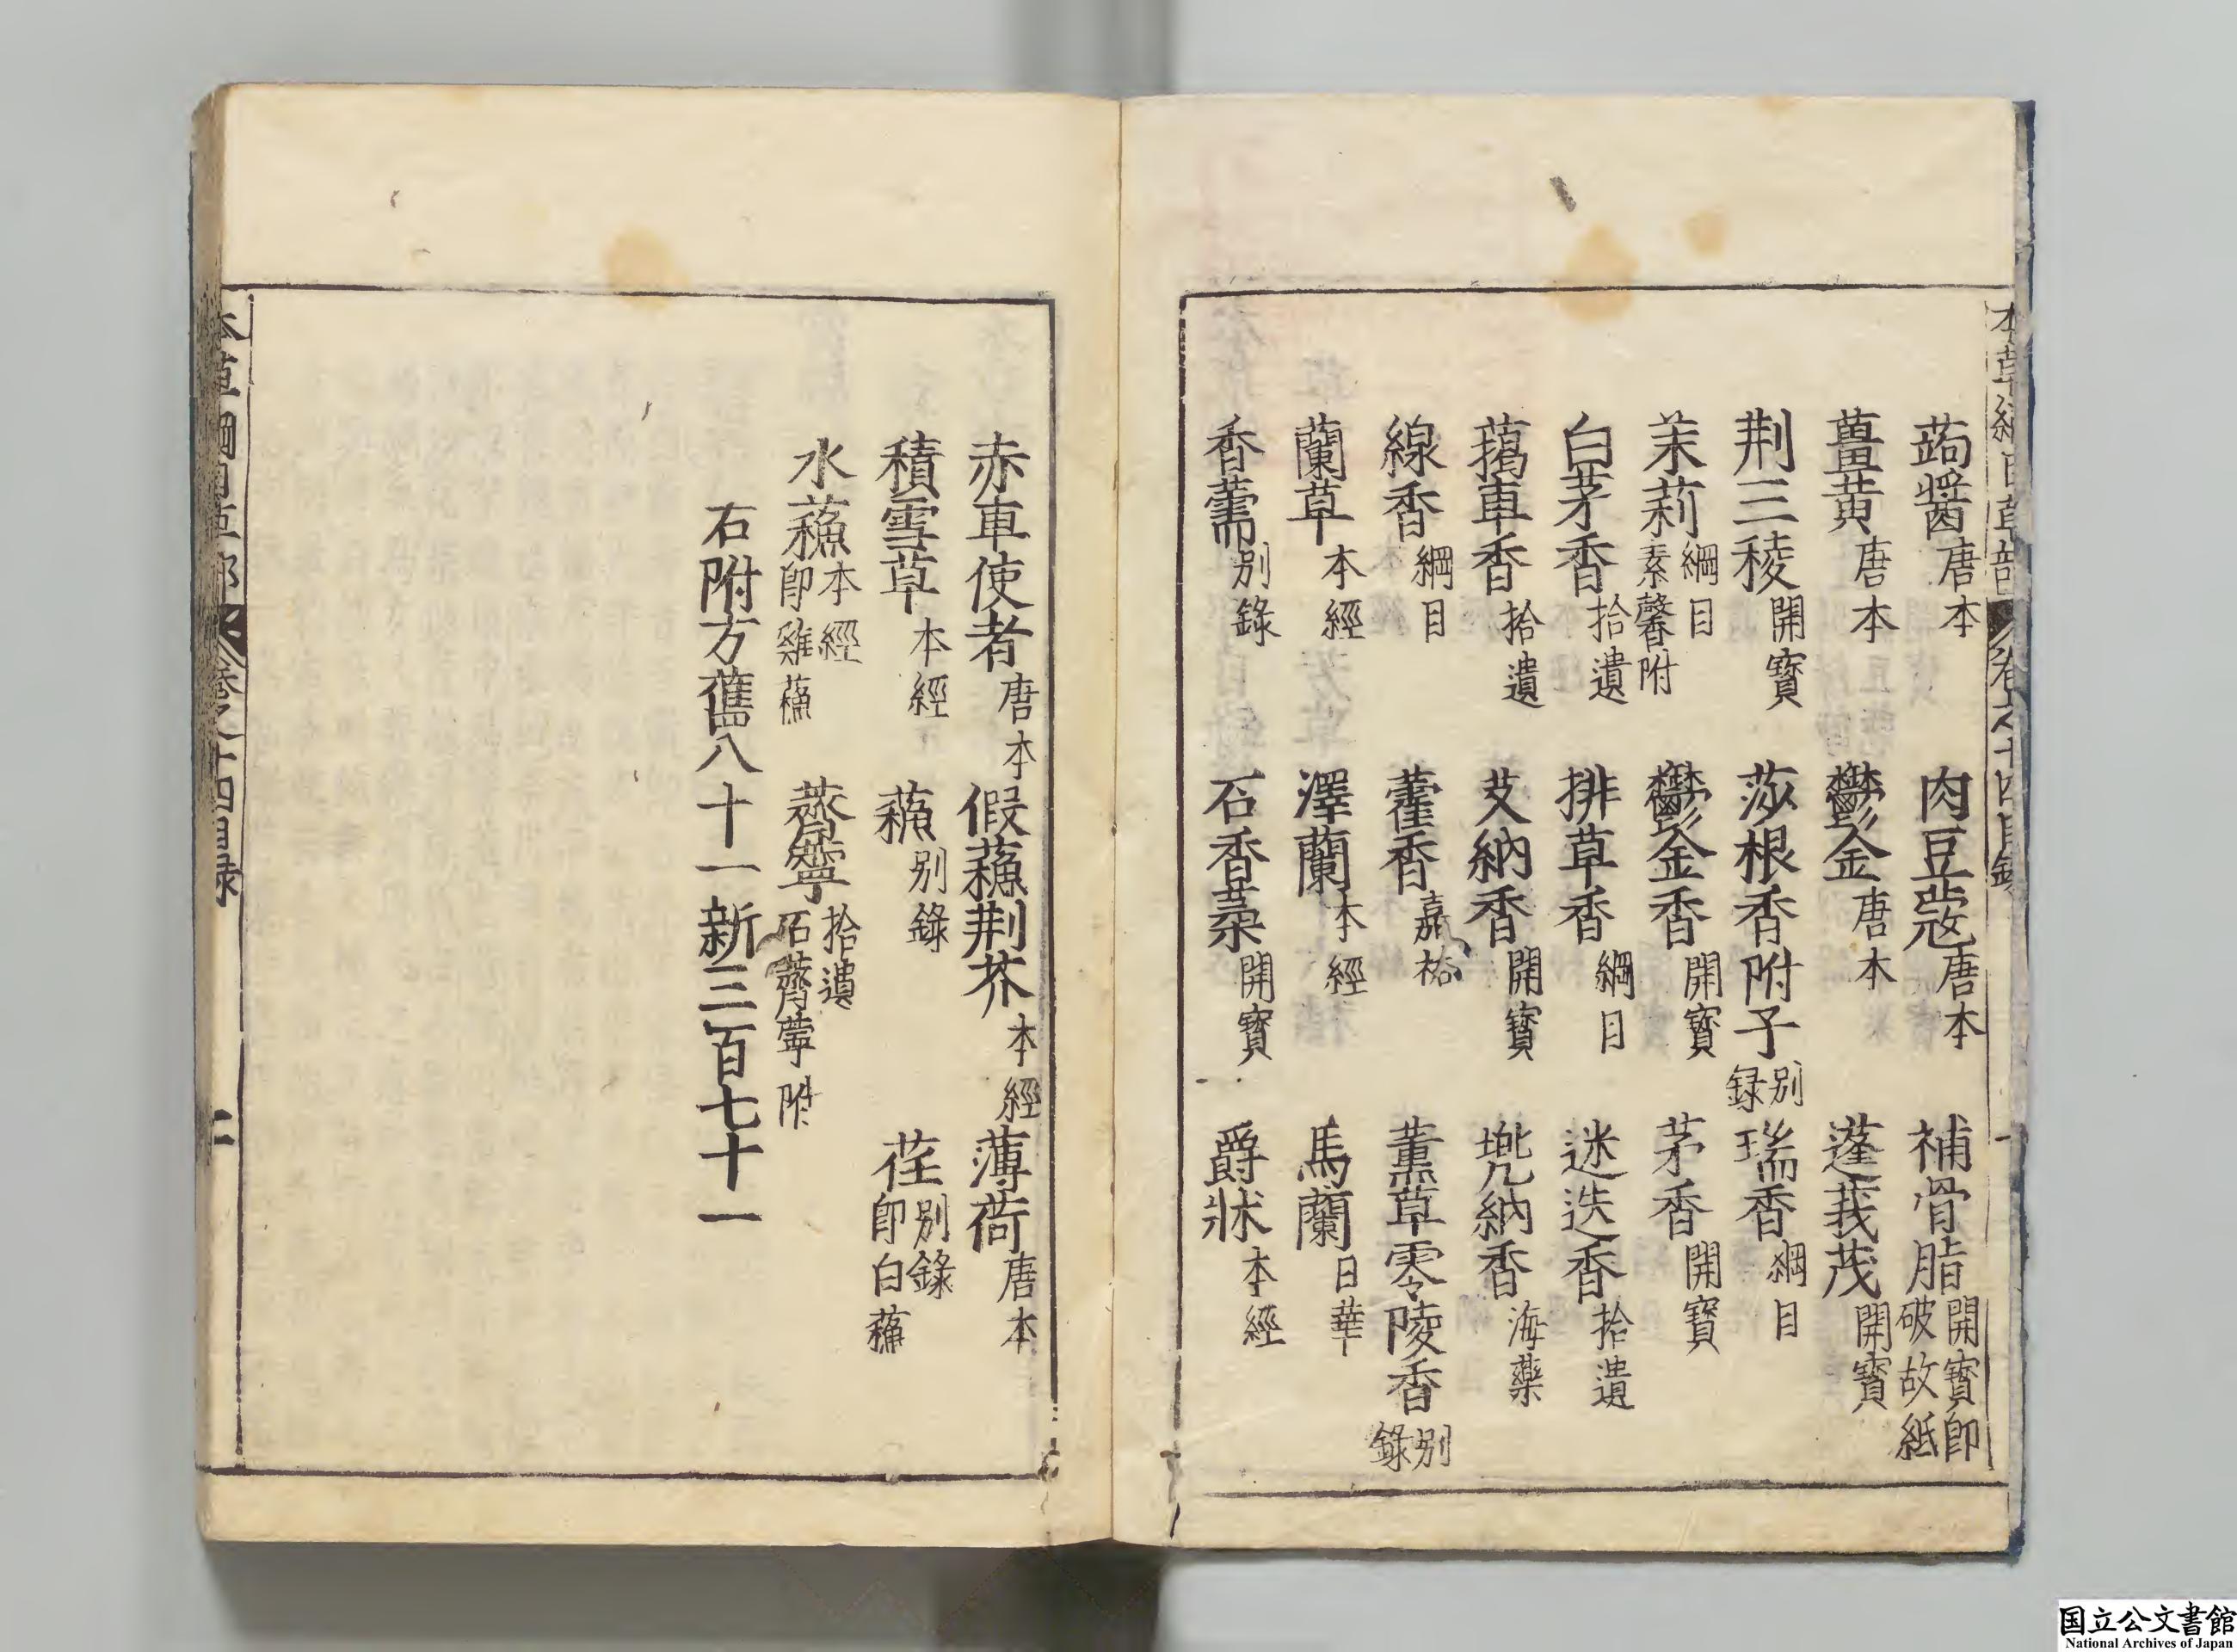 本草綱目草部 卷之十四目錄 一
蒟醬唐本 肉豆蔻唐本 補骨脂開寶即破故紙
薑黃唐本 鬱金唐本 蓬莪茂開寶
荆三稜開寶 莎根香附子别録 瑞香綱目
茉莉綱目素馨附 鬱金香開寶 茅香開寶
白茅香拾遺 排草香綱目 迷迭香拾遺
藒車香拾遺 艾納香開寶 兜納香海藥
線香綱目 藿香嘉祐 薰草零陵香别錄
蘭草本經 澤蘭本經 馬蘭日華
香薷别錄 石香葇開寶 爵牀本經
赤車使者唐本 假蘓荆芥本經 薄荷唐本
積雪草本經 蘓别錄 荏别錄即白蘓
水蘓本經即雞蘓 薺薴拾遺石薺薴附
右附方舊八十一新三百七十一
本草綱目草部 卷之十四目録 二
国立公文書館
National Archives of Japan